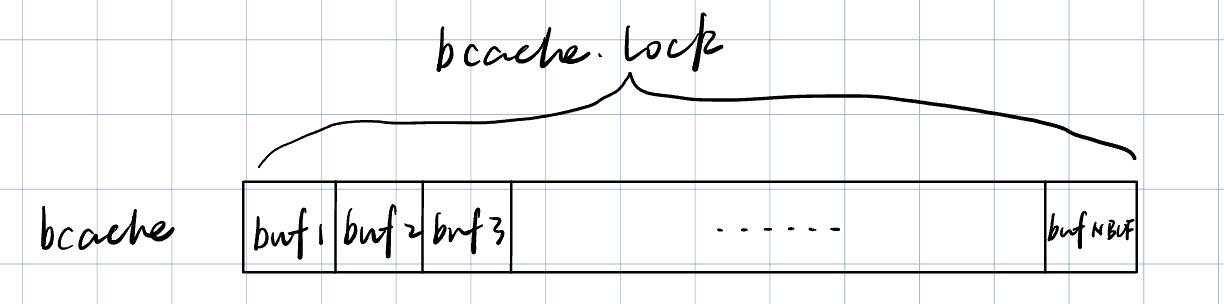 bcache.lock
bcache buf1 buf2 buf3 ...... bufNBUF